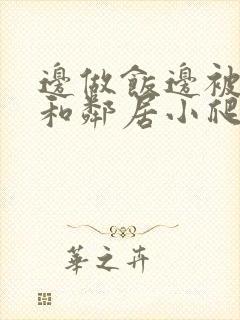 邊做飯邊被
和鄰居小爬
華之卉